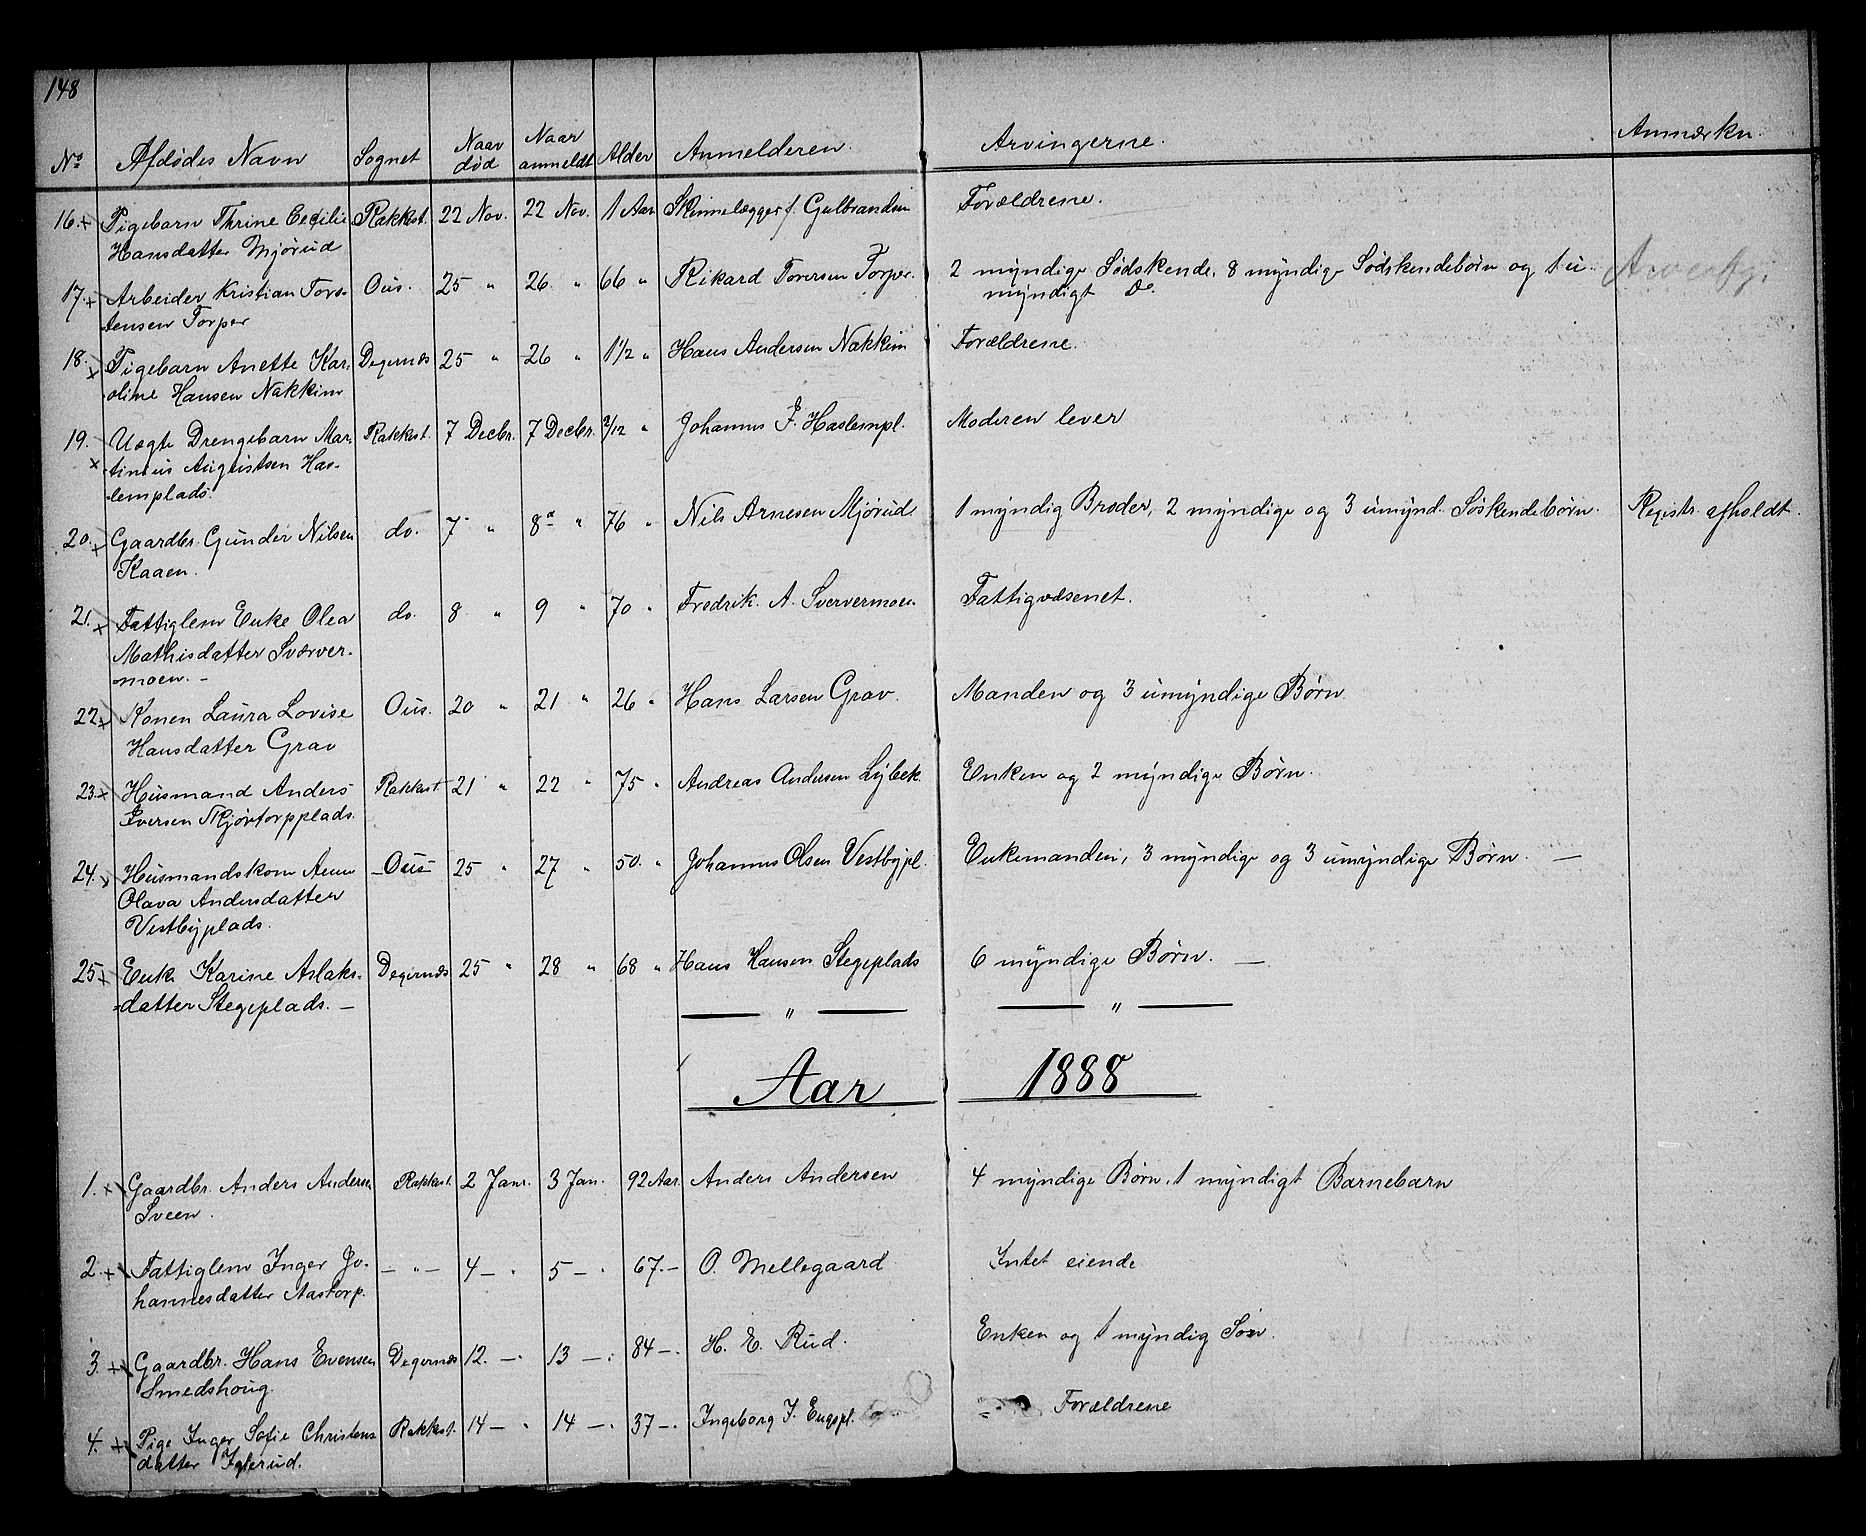 148
No Afdødes Navn Sognet Naar død Naar anmeldt Alder Anmelderen. Arvingerne. Anmærkn.
16. Pigebarn Thrine Cecilie Rakkest. 22 Nov. 22 Nov. 1 Aar Skinnelægger f. Gulbrandsen Forældrene.
Hansdatter Mjørud
17. Arbeider Kristian Tors- Ous. 25 " 26 " 66 " Rikard Toresen Torper. 2 myndige Sødskende, 8 myndige Sødskendebørn og 1 u-
tensen Torper myndigt Do.
18. Pigebarn Anette Kar- Degernæs 25 " 26 " 1 1/2 " Hans Andersen Nakkim Forældrene.
oline Hansen Nakkim
19. Uægte Drengebarn Mar- Rakkest. 7 Decbr. 7 Decbr. 2/12 " Johannes J. Haslempl. Moderen lever
tinius Augustsen Has-
lemplads.
20. Gaardbr. Gunder Nilsen do. 7 " 8 " 76 " Nils Arnesen Mjørud 1 myndig Broder, 2 myndige og 3 umynd. Søskendebørn. Registr. afholdt.
Kaaen.
21. Fattiglem Enke Olea do. 8 " 9 " 70 " Fredrik. A. Sververmoen Fattigvæsenet.
Mathisdatter Sværver-
moen. -
22. Konen Laura Lovise Ous. 20 " 21 " 26 " Hans Larsen Grav. Manden og 3 umyndige Børn
Hansdatter Grav
23. Husmand Anders Rakkest. 21 " 22 " 75 " Andreas Andersen Lybek. Enken og 2 myndige Børn.
Iversen Skjørtorpplads.
24. Husmandskone Anne - Ous - 25 " 27 " 50. " Johannes Olsen Vestbypl. Enkemanden, 3 myndige og 3 umyndige Børn. —
Olava Andersdatter
Vestbyplads.
25. Enke Karine Aslaks- Degernæs 25 " 28 " 68 " Hans Hansen Stegeplads 6 myndige Børn. —
datter Stegeplads. — — " — — " —
Aar 1888
1. Gaardbr. Anders Andersen Rakkest. 2 Janr. 3 Jan. 92 Aar. Anders Andersen 4 myndige Børn. 1 myndigt Barnebarn
Sveen.
2. Fattiglem Inger Jo- — " — 4 — " 5 — " 67. — O. Mellegaard Intet eiende
hannesdatter Aastorp.
3. Gaardbr. Hans Evensen Degernæs 12. — . 13 — . 84 — . H. E. Rud. Enken og 1 myndig Søn.
Smedshoug.
4. Pige Inger Sofie Christens Rakkest. 14 — " 14 — . 37 — . Ingeborg J. Engspl. Forældrene
datter Iglerud.